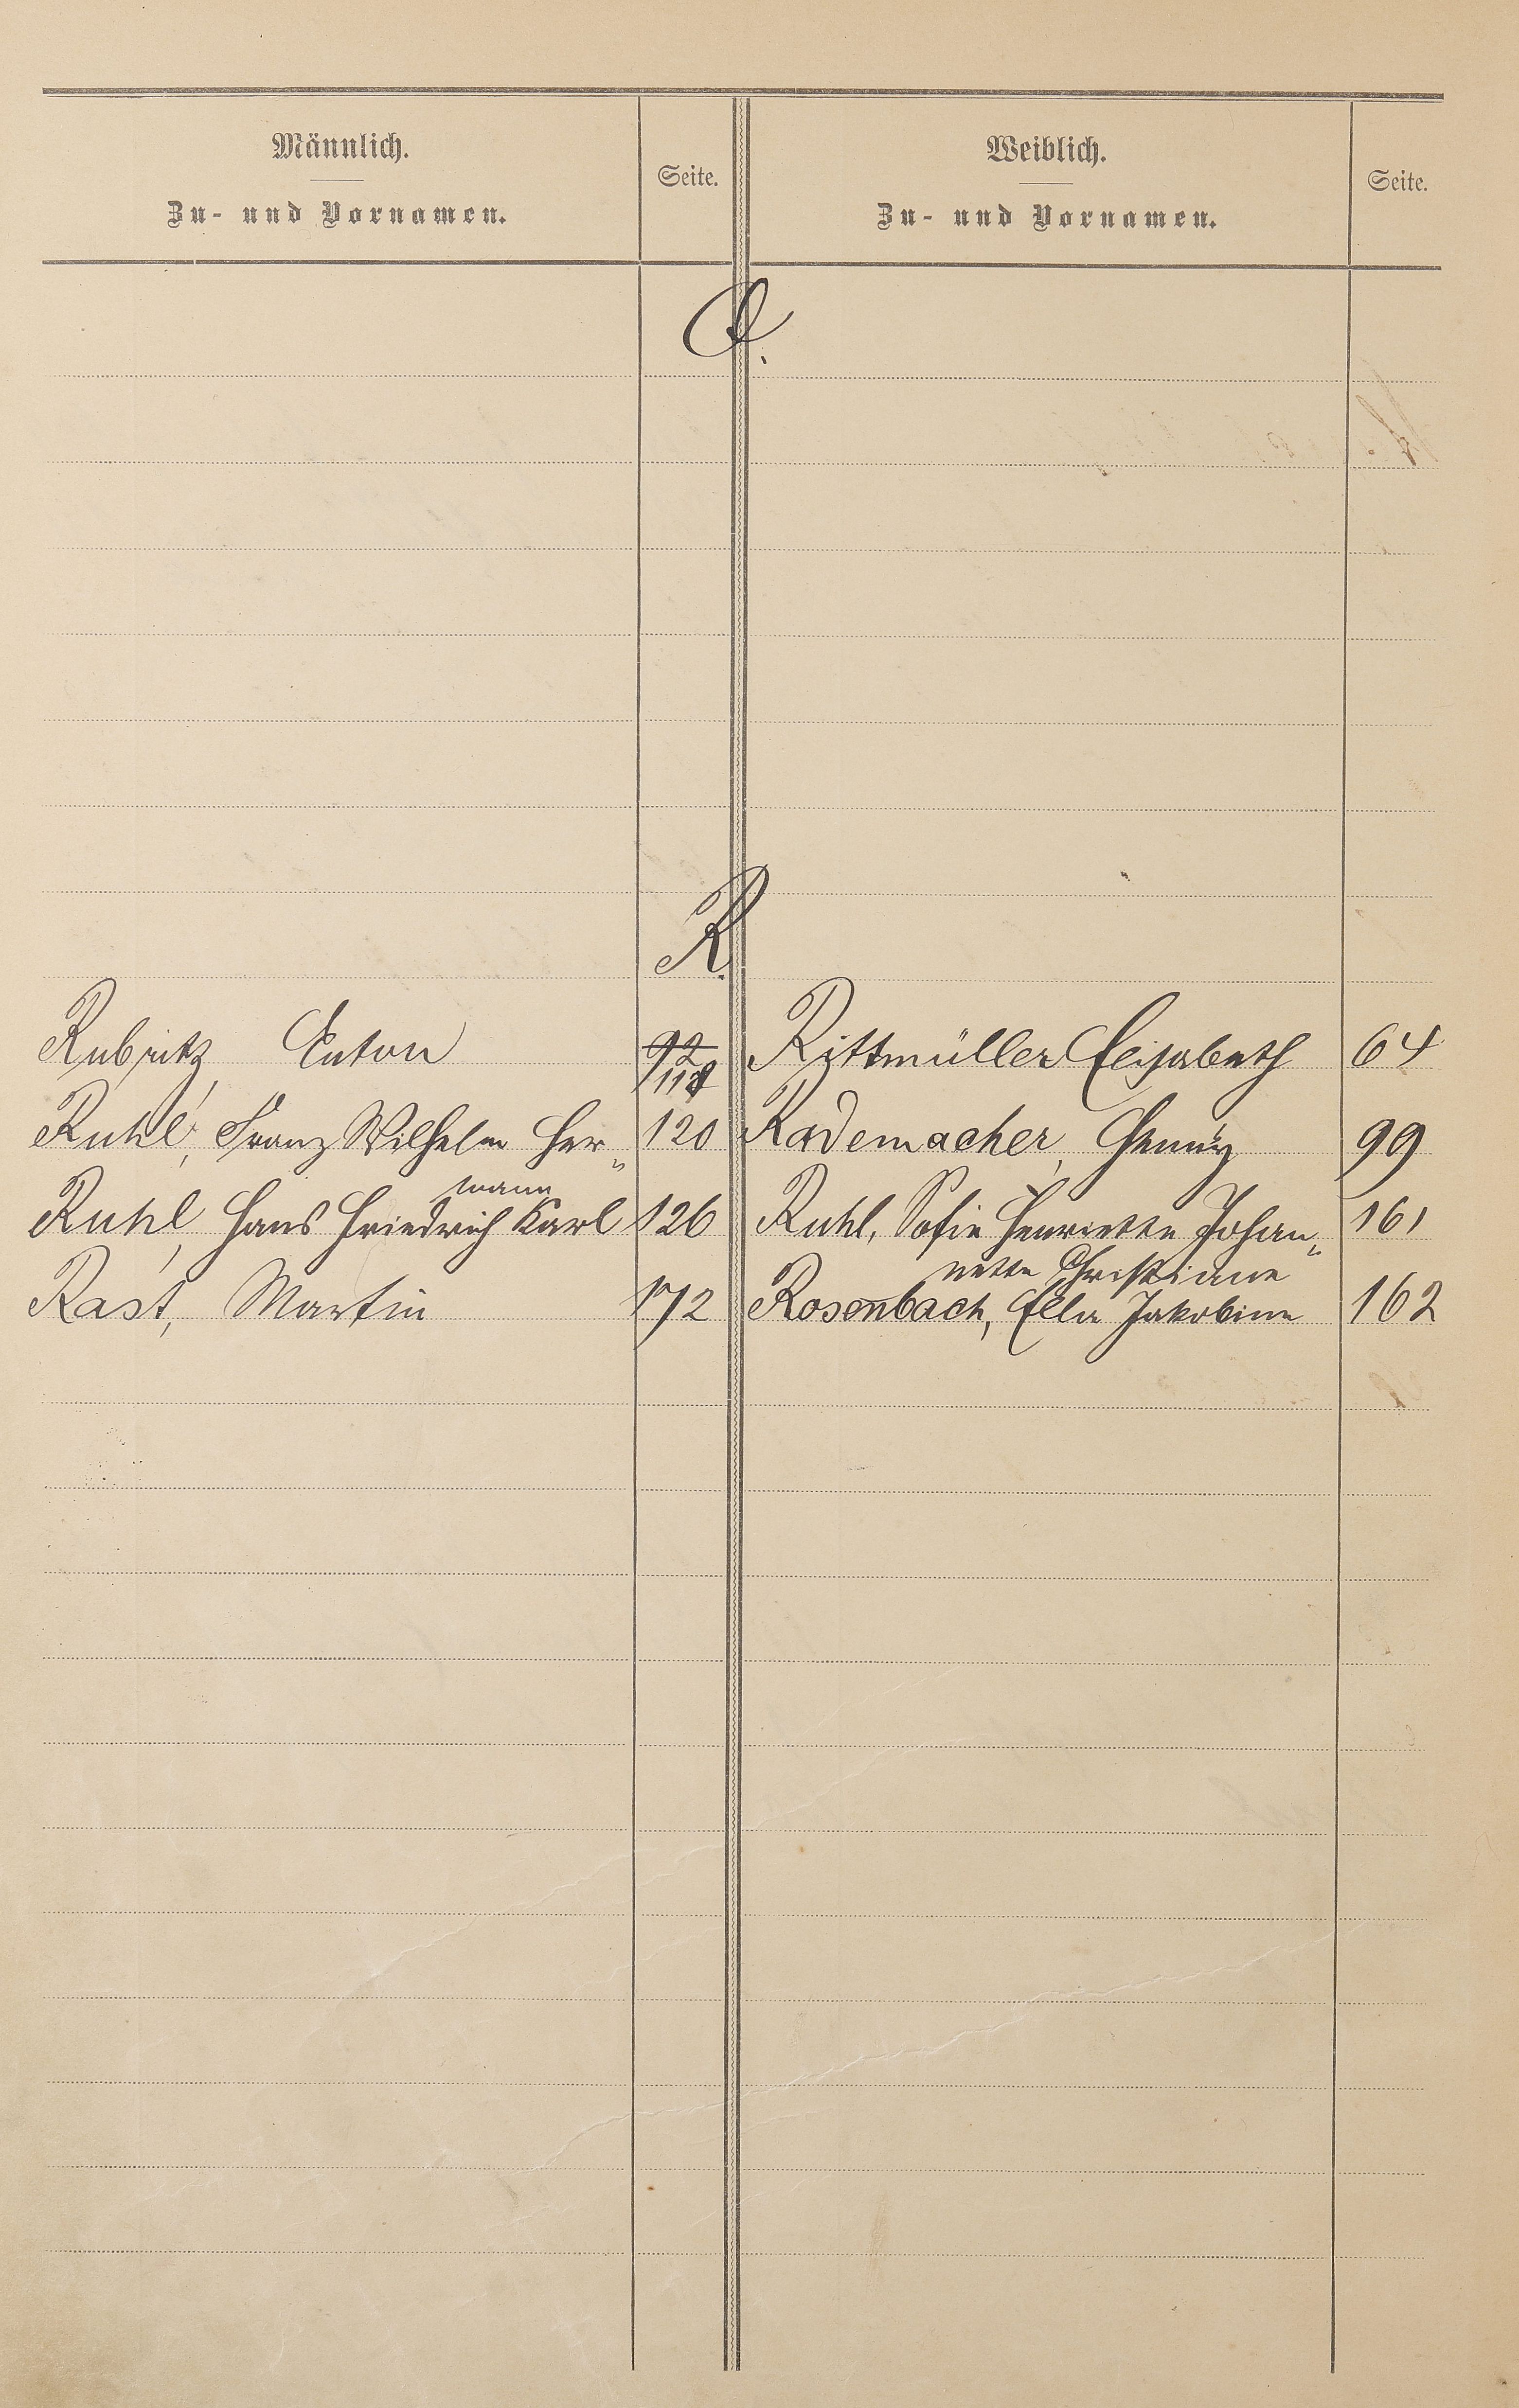 Männlich.
Zu- und Vornamen.
Seite.
Weiblich.
Zu- und Vornamen.
Seite.
Q.
R.
Rubritz Anton 92 118
Rittmüller Elisabeth 64
Ruhl, Franz Wilhelm Her„
mann 120
Rademacher, Henny 99
Ruhl, Hans Friedrich Karl 126
Ruhl, Sofie Henriette Johan„
nette Christiane 161
Rast, Martin 172
Rosenbach, Ella Jakobine 162